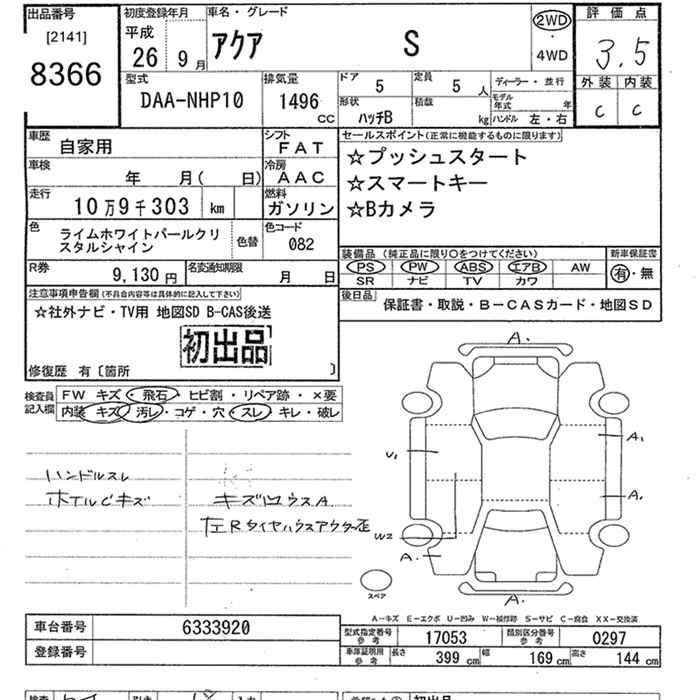 出品番号
[2141]
8366
初度登録年月
平成
26 9月
車名・グレード
アクア S
2WD
・
4WD
評価点
3.5
外装 内装
C C
型式
DAA-NHP10
排気量
1496
CC
ドア
5
定員
5 人
形状
ハッチB
積載
kg
ディーラー・並行
モデル年式 年
ハンドル 左・右
車歴
自家用
シフト
FAT
車検
年 月( 日)
冷房
AAC
走行
10万9千303 km
燃料
ガソリン
色
ライムホワイトパールクリ
スタルシャイン
色替
色コード
082
R券
9,130 円
名変通知期限
月 日
セールスポイント(正常に機能するものに限ります)
☆プッシュスタート
☆スマートキー
☆Bカメラ
装備品(純正品に限り〇をつけてください)
新車保証書
PS PW ABS エアB AW
SR ナビ TV カワ
有・無
後日品
保証書・取説・B-CASカード・地図SD
注意事項申告欄(不具合内容等は具体的に記入して下さい)
☆社外ナビ・TV用 地図SD B-CAS後送
初出品
修復歴 有〔箇所 〕
検査員
記入欄
FW キズ・飛石・ヒビ割・リペア跡・×要
内装 キズ・汚レ・コゲ・穴・スレ・キレ・破レ
ハンドルスレ
キズ
A.
A.
A1
U1
A.
W2
A.
A.
スペア
A-キズ E-エクボ U-凹み W-補修跡 S-サビ C-腐食 XX-交換済
車台番号
6333920
登録番号
型式指定番号
参考
17053
類別区分番号
参考
0297
車庫証明用
参考
長さ 399 cm
幅 169 cm
高さ 144 cm
初出品